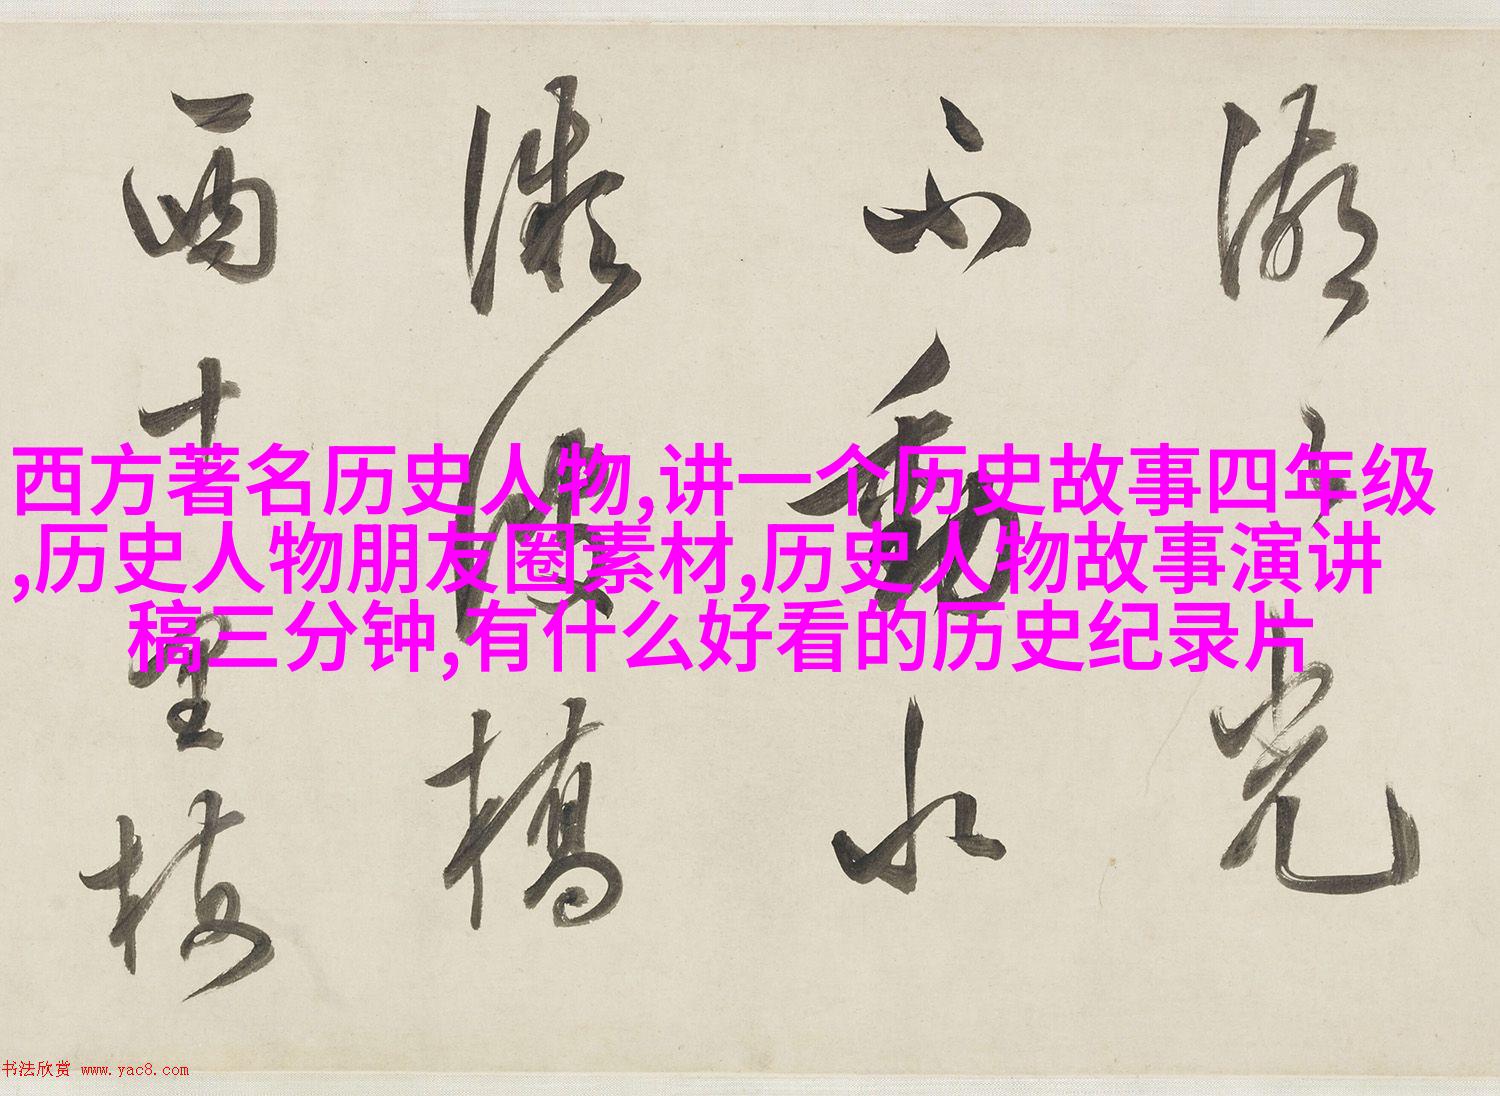 湖上光
不动水
微偃橋
西十里枝
西方著名历史人物,讲一个历史故事四年级
,历史人物朋友圈素材,历史人物故事演讲
稿三分钟,有什么好看的历史纪录片
书法欣赏 www.yac8.com